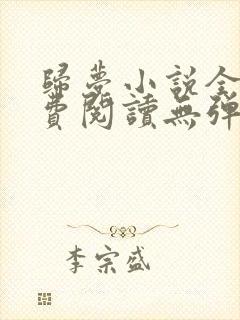 歸夢小說全
費閱讀無彈
李宗盛